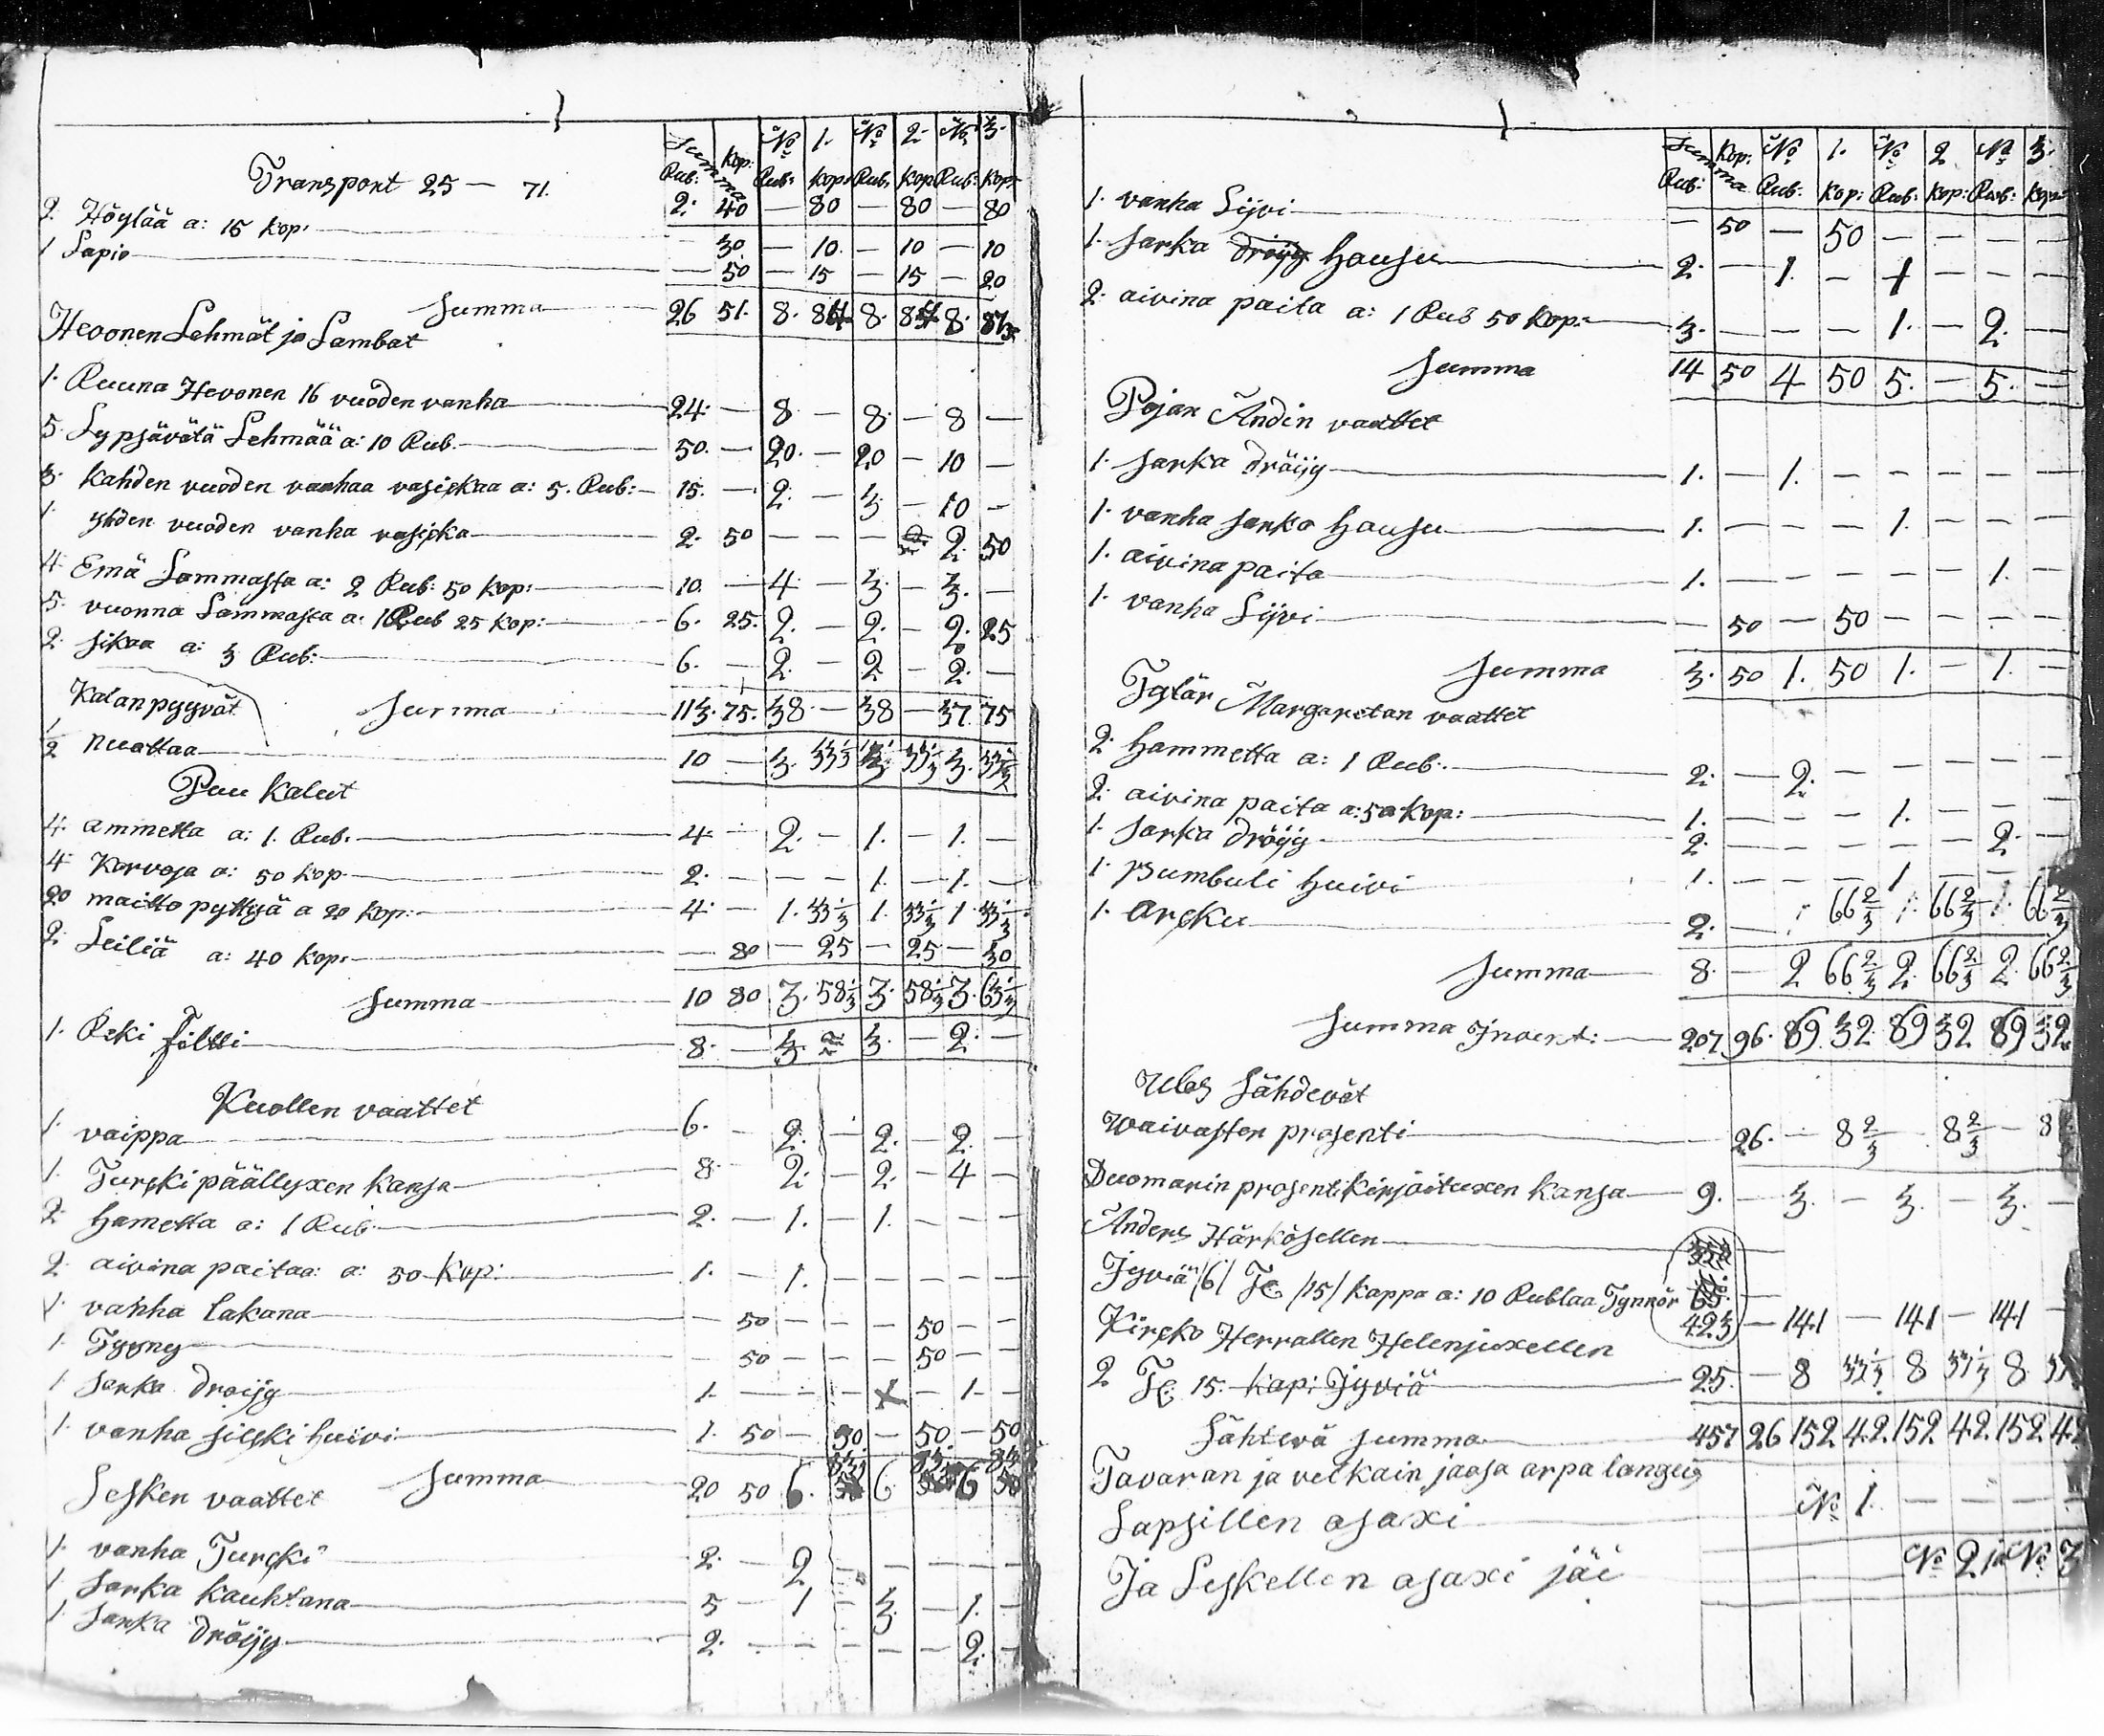 Summa Kop: No 1. No 2. No 3.
Rub: Rub: Kop: Rub: Kop: Rub: Kop:
Transport 25 — 71. 2. 40 — 80 — 80 — 80
2. Höylää a: 15 Kop: — 30 — 10. — 10 — 10
1 Lapio — 50 — 15 — 15 — 20
Summa 26 51. 8. 84 8. 84 8. 83
Hevonen Lehmät ja Lambat
1. Ruuna Hevonen 16 vuoden vanha 24. — 8. — 8. — 8 —
5. Lypsävätä Lehmää a: 10 Rub. 50. — 20. — 20 — 10 —
3. Kahden vuoden vanhaa vasickaa a: 5. Rub: 15. — 2. — 3 — 10 —
1. yhden vuoden vanha vasicka 2. 50 — — — 2. 50
4. Emä Lammasta a: 2 Rub: 50 Kop: 10. — 4. — 3. — 3. —
5. vuonna Lammasta a: 1 Rub 25 Kop: 6. 25. 2. — 2. — 2. 25
2. sikaa a: 3 Rub: 6. — 2. — 2 — 2. —
Kalanpyyvät Summa 113. 75. 38. — 38 — 37. 75
1/2 nuottaa 10 — 3. 33 1/3 3. 33 1/3 3. 33 1/3
Puu Kalut
4. ammetta a: 1. Rub. 4. — 2. — 1. — 1. —
4. Korvoja a: 50 Kop 2. — — — 1. — 1. —
20 maitto pyttyä a 20 Kop: 4. — 1. 33 1/3 1. 33 1/3 1 33 1/3
2. Leiliä a: 40 Kop: — 80 — 25 — 25 — 30
Summa 10 80 3. 58 1/3 3. 58 1/3 3. 63 1/3
1. Reki Föltti 8. — 3. 3. — 2. —
Kuollen vaattet
1. vaippa 6. — 2. — 2. — 2. —
1. Turcki päällyxen kansa 8. 2. — 2. — 4 —
2. hametta a: 1 Rub 2. — 1. — 1. — — —
2. aivina paitaa: a: 50 Kop: 1. — 1. — — — — —
1. vanha lakana — 50 — — — 50 — —
1. Tyyny — 50 — — — 50 — —
1 sarka droijy 1. — — — — 1. —
1. vanha silcki huivi 1. 50 — 50 — 50. — 50
Summa 20 50 6. 6 6
Lesken vaattet
1. vanha Turcki 2. — 2 — — — — —
1. Sarka kauhtana 5 — 1 — 3. — 1. —
1. Sarka dröijy 2. — — — — — 2. —
Summa Kop: No 1. No 2 No 3.
Rub: Rub: Kop: Rub: Kop: Rub: Kop:
1. vanha Lijvi — 50 — 50 — — — —
1. sarka hausu 2. — 1. — 1 — — —
2. aivina paita a: 1 Rub 50 Kop: 3. — — — 1. — 2. —
Summa 14 50 4 50 5. — 5. —
Pojan Andin vaattet
1. sarka dröijy 1. — 1. — — — — —
1. vanha sarka hausu 1. — — — 1. — — —
1. aivina paita 1. — — — — — 1. —
1. vanha Lijvi — 50 — 50 — — — —
Summa 3. 50 1. 50 1. — 1. —
Tytär Margaretan vaattet
2. hammetta a: 1 Rub. 2. — 2. — — — — —
2. aivina paita a: 50 Kop: 1. — — — 1. — — —
1. sarka dröijy 2. — — — — — 2. —
1. Bumbuli huivi 1. — — — 1 — — —
1. arcku 2. — 66 2/3 1. 66 2/3 1. 66 2/3
Summa 8. — 2 66 2/3 2. 66 2/3 2. 66 2/3
Summa Jnvent: 207 96. 69. 32 69 32 69 32
Ulos Lähdevät
Waivasten prosenti — 26. — 8 2/3 8 2/3 — 8
Duomarin prosenti Kirjoituxen kansa 9. — 3. — 3. — 3. —
Anders Härkösellen
Jyviä /6/ T: /15/ kappa a: 10 Rublaa Tynnör
423 — 141 — 141 — 141
Kircko Herrallen Helenjuxellen
2 T: 15. Kap: Jyviä 25. — 8 33 1/3 8 33 1/3 8 33
Lähtevä summa 457 26 152 42. 152 42 152 42
Tavaran ja velkain jaosa arpa langeis
Lapsillen osaxi No 1. — — — —
Ja Leskellen osaxi jäi No 2 ja No 3